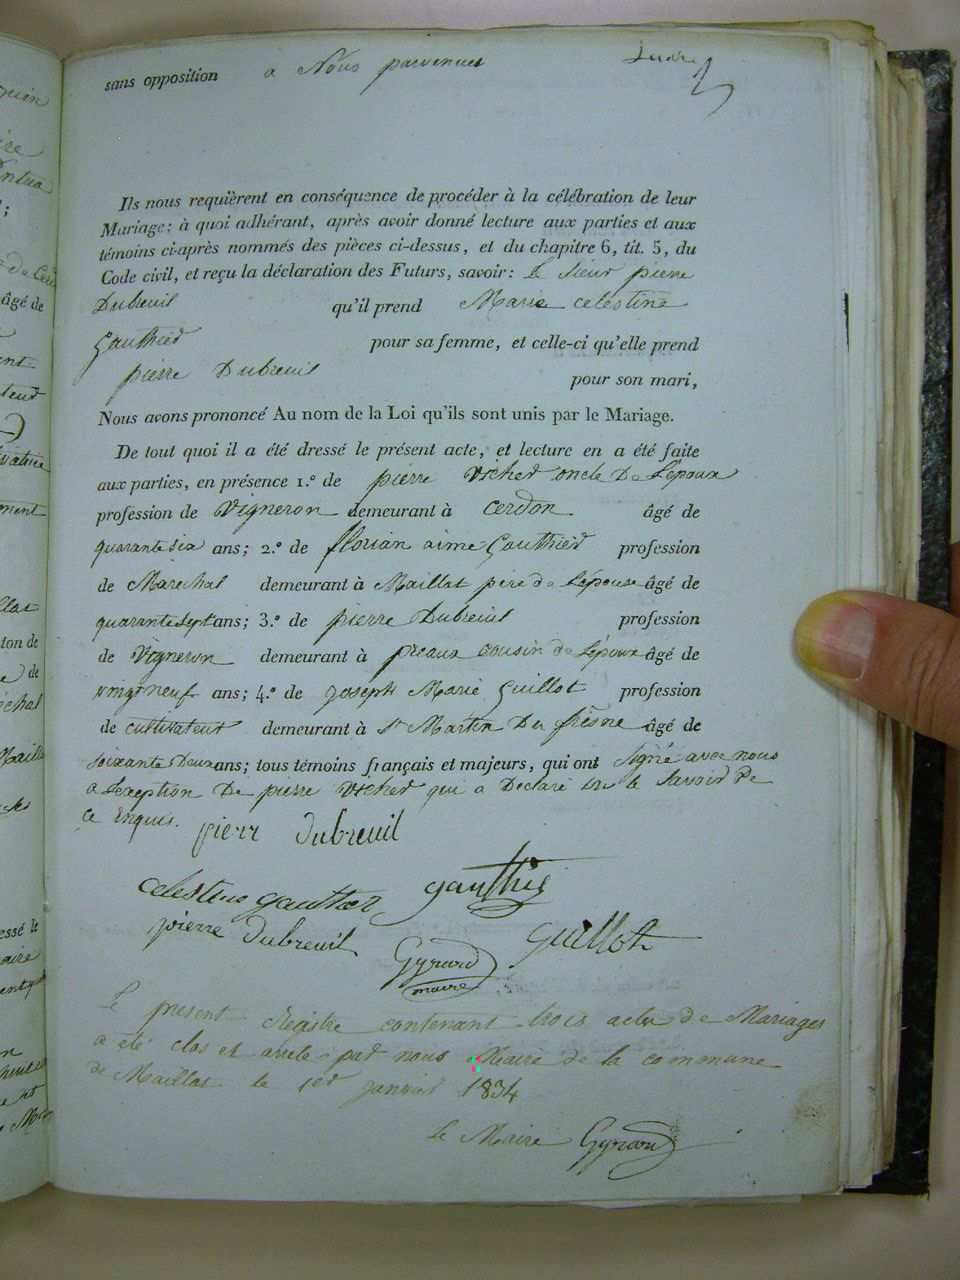 sans opposition a Nous parvenues
Ils nous requièrent en conséquence de procéder à la célébration de leur
Mariage; à quoi adhérant, après avoir donné lecture aux parties et aux
témoins ci-après nommés des pièces ci-dessus, et du chapitre 6, tit. 5, du
Code civil, et reçu la déclaration des Futurs, savoir: le sieur pierre
Dubreuil qu'il prend Marie celestine
Gauthier pour sa femme, et celle-ci qu'elle prend
pierre Dubreuil pour son mari,
Nous avons prononcé Au nom de la Loi qu'ils sont unis par le Mariage.
De tout quoi il a été dressé le présent acte, et lecture en a été faite
aux parties, en présence 1.º de pierre oncle De Lépoux
profession de Vigneron demeurant à Cerdon âgé de
quarante six ans; 2.º de florian aimé Gauthier profession
de Maréchal demeurant à Maillat père de Lépouse âgé de
quarante sept ans; 3.º de pierre Dubreuil profession
de Vigneron demeurant à preaux cousin de Lépoux âgé de
vingt neuf ans; 4.º de joseph Marie Guillot profession
de cultivateur demeurant à St Martin Du fresne âgé de
soixante Deux ans; tous témoins français et majeurs, qui ont signé avec nous
a Lexception De pierre qui a Déclaré ne le savoir De
ce Enquis. pierr dubreuil
celestine gauthier gauthié
pierre dubreuil Gynard Guillot
maire
Le présent Registre contenant trois actes de Mariages
a été clos et arrêté par nous Maire de la commune
de Maillat le 1er janvier 1834
Le Maire Gynard